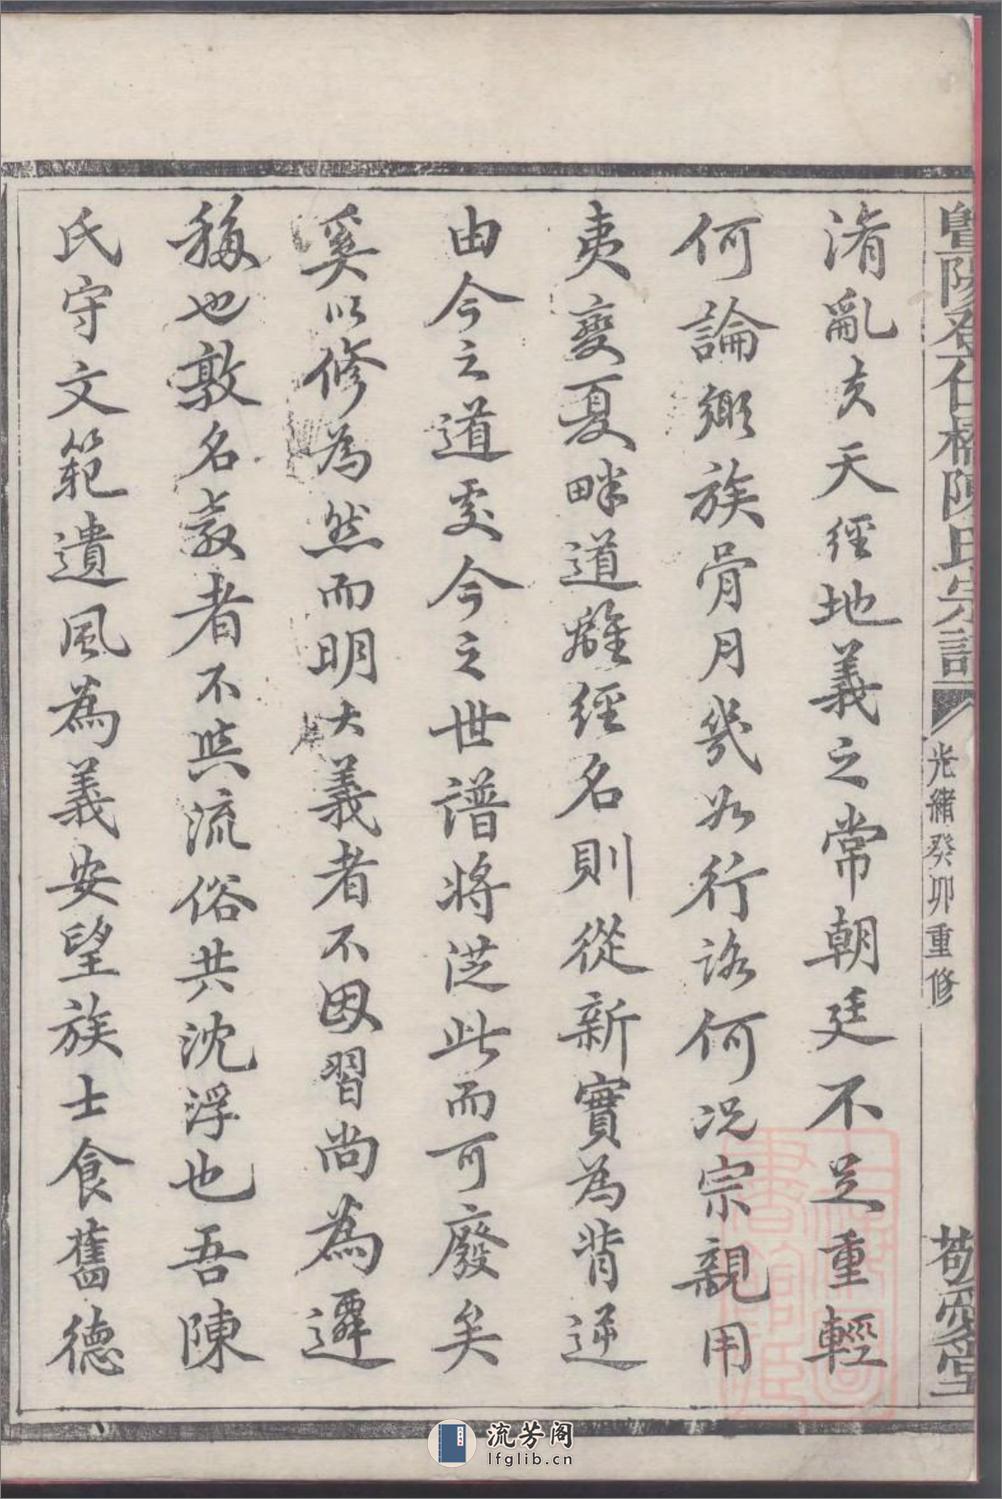 暨陽
石橋陳氏宗譜
光緒癸卯重修
敬愛堂
淆亂矣天經地義之常朝廷不足重輕
何論鄉族骨月幾如行路何况宗親用
夷變夏畔道離經名則從新實為背逆
由今之道変今之世譜將湮此而可廢矣
奚以修為然而明大義者不因習尚為遷
移也敦名教者不與流俗共沈浮也吾陳
氏守文範遺風為義安望族士食舊德
流芳阁
lfglib.cn